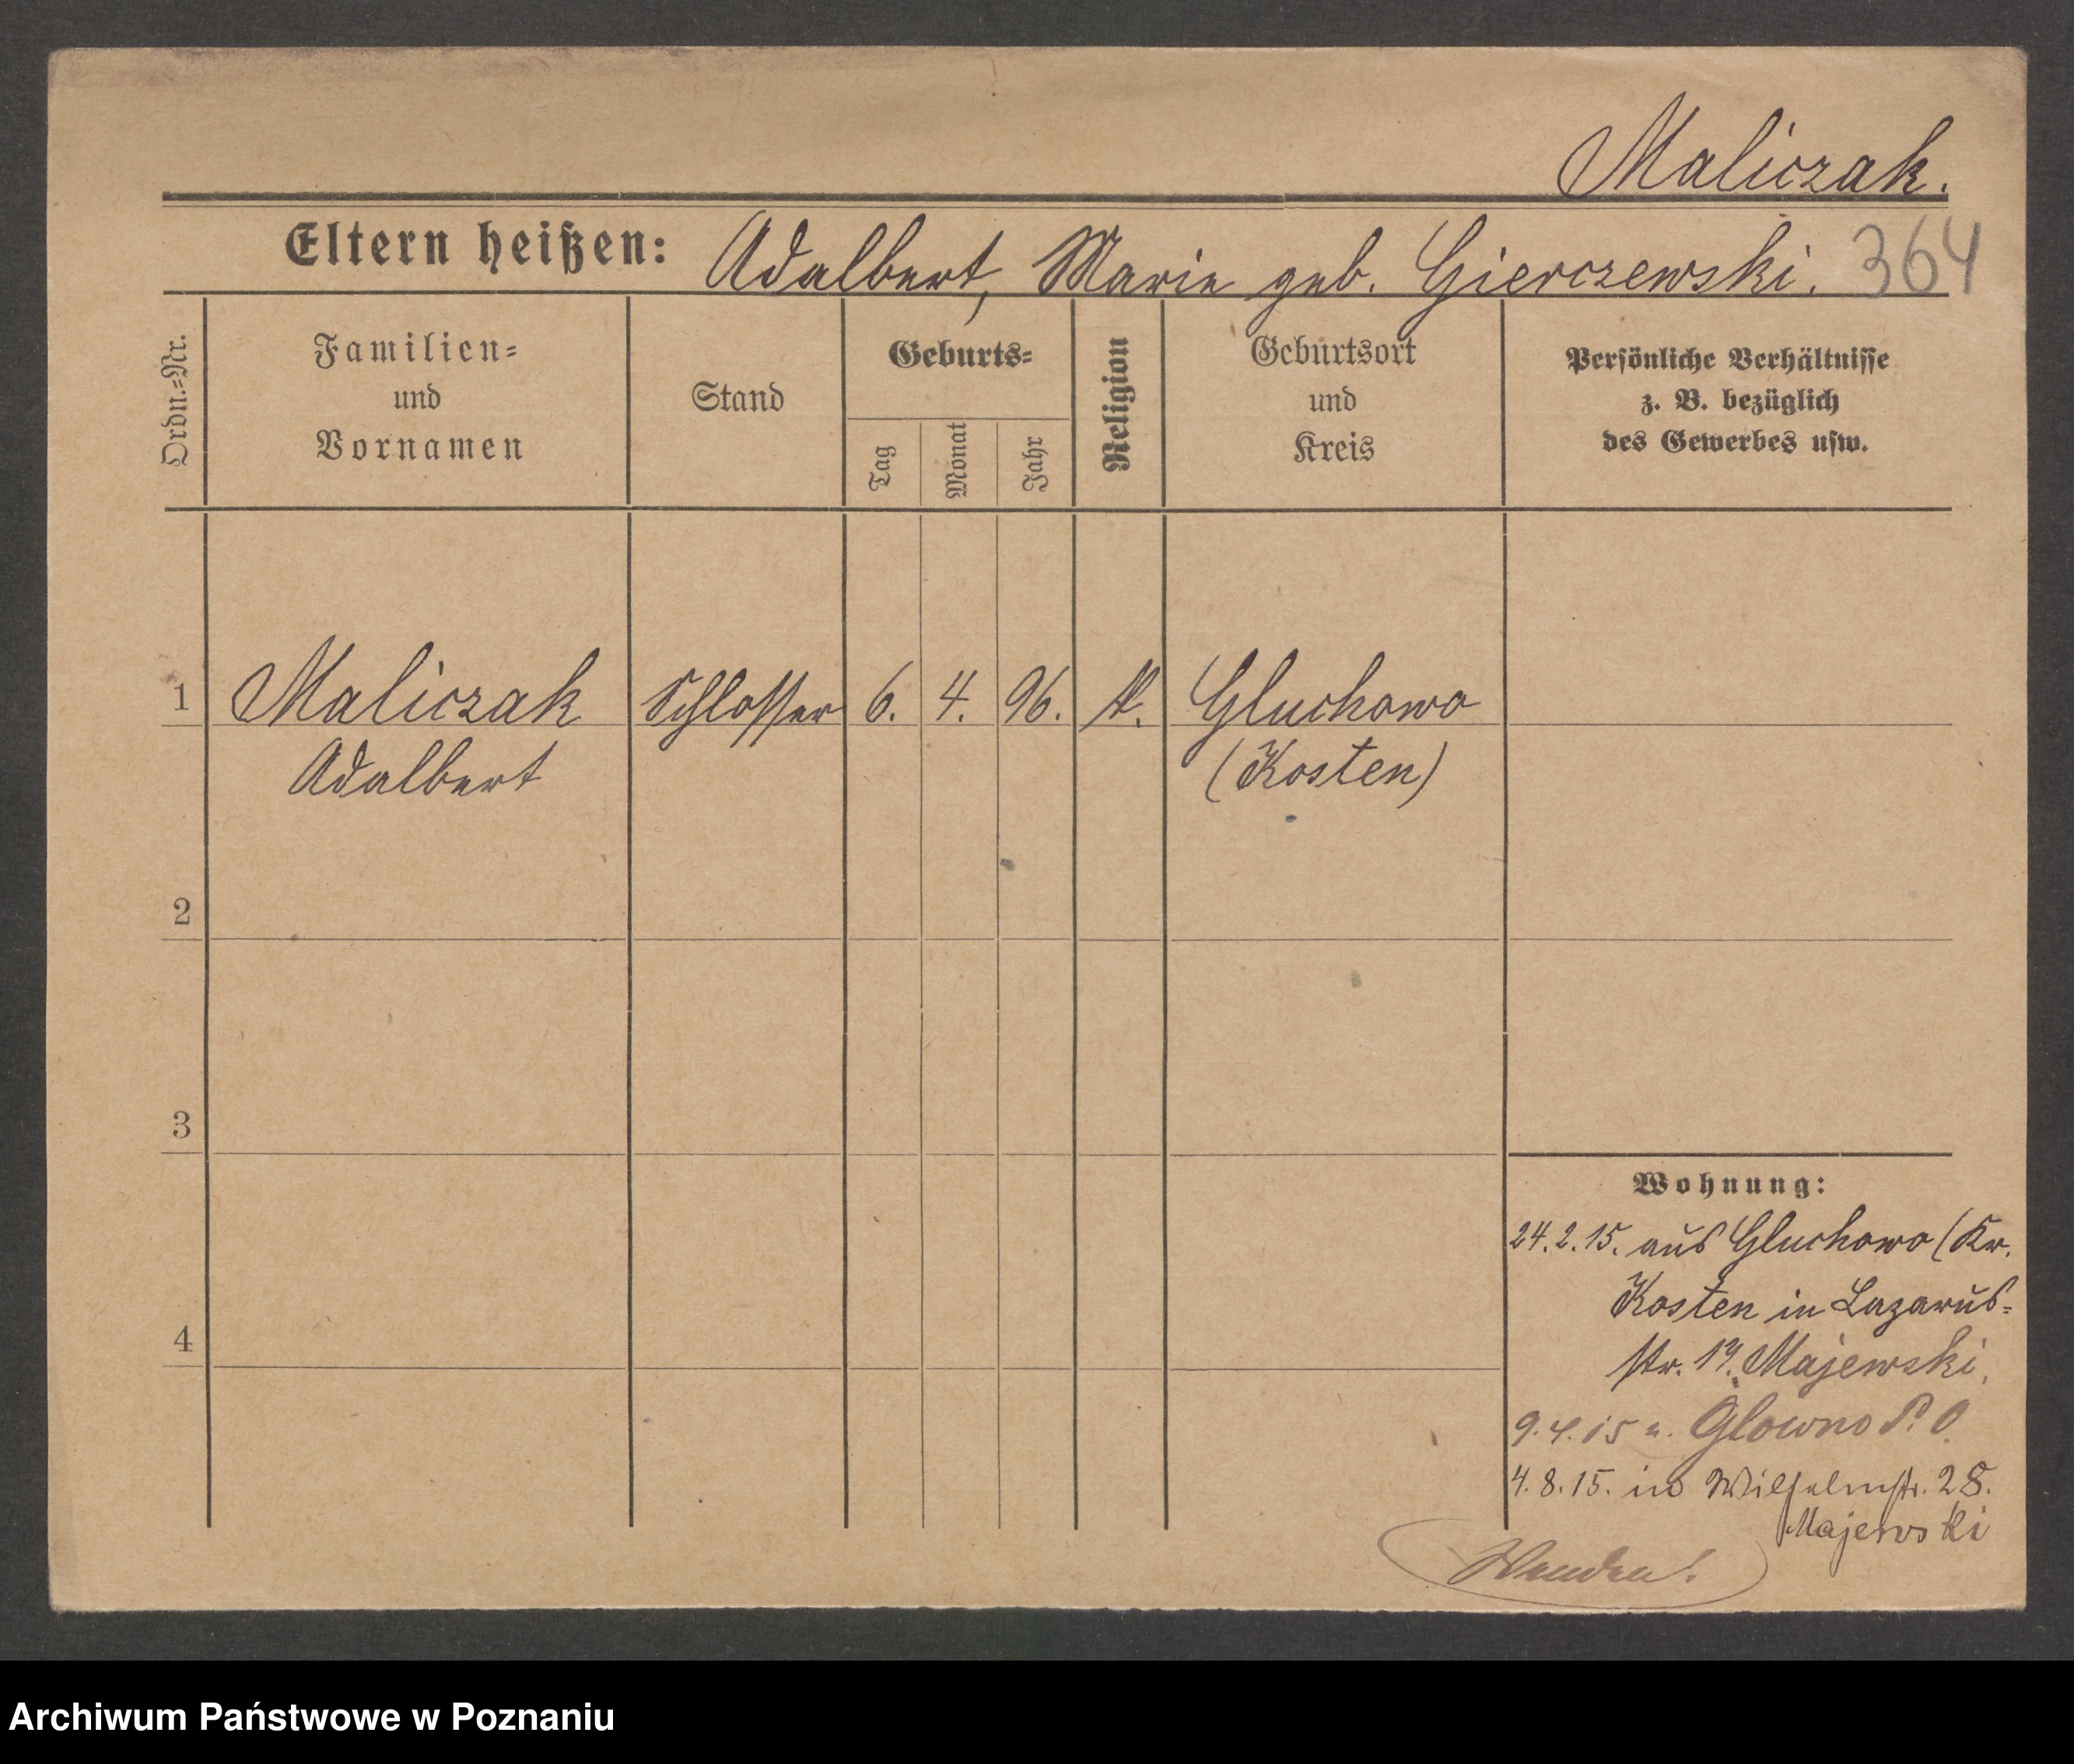 Maliczak.
Eltern heißen: Adalbert, Marie geb. Gierczewski. 364
Ordn.-Nr.
Familien-
und
Vornamen
Stand
Geburts-
Tag
Monat
Jahr
Religion
Geburtsort
und
Kreis
Persönliche Verhältnisse
z. B. bezüglich
des Gewerbes usw.
1 Maliczak Schlosser 6. 4. 96. k. Gluchowo
Adalbert (Kosten)
2
3
4
Wohnung:
24.2.15. aus Gluchowo (Kr.
Kosten in Lazarus-
str. Majewski,
9.4.15 n. Glowno P. O.
4.8.15. in Wilhelmstr. 28.
Majewski
Wenden!
Archiwum Państwowe w Poznaniu